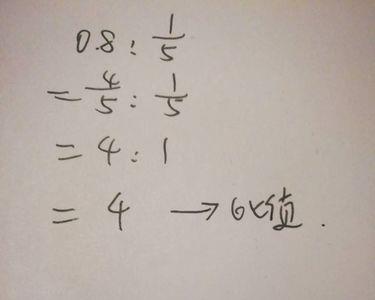 0.8 : 1/5
= 4/5 : 1/5
= 4 : 1
= 4 → 比值.